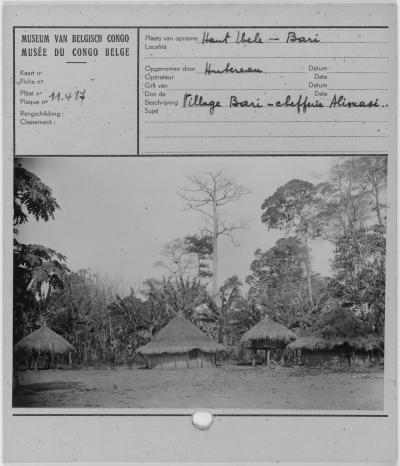 MUSEUM VAN BELGISCH CONGO
MUSÉE DU CONGO BELGE
Kaart nr
Fiche nº
Plaat nr
Plaque nº 11.417
Rangschikking :
Classement :
Plaats van opname Haut Uele — Bari
Localité
Opgenomen door Datum
Opérateur Date
Gift van Datum
Don de Date
Beschrijving Village Bari — chefferie Alimasi..
Sujet